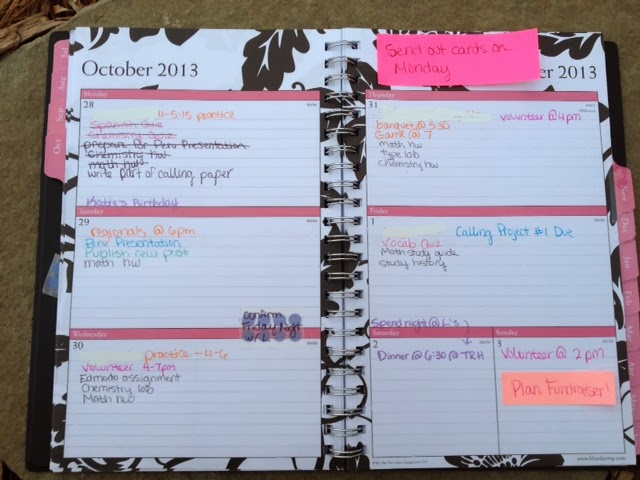 October 2013
Monday
28
4-5:15 practice
Spanish Quiz
Chemistry Quiz
prepare for Peru Presentation
Chemistry HW
math HW
write part of calling paper
Katie's Birthday
Tuesday
29
regionals @ 6pm
Peru Presentation
Publish new post
math HW
confirm
Friday Night
w/ L
Wednesday
30
practice - 4-6
Volunteer 4-7pm
Edmodo assignment
Chemistry lab
Math HW
Send out cards on
Monday
2013
Thursday
31
Volunteer @ 4pm
banquet @ 5:30
Game @ 7
math HW
type lab
Chemistry HW
Friday
1
Calling Project #1 Due
Vocab Quiz
Math study guide
study history
Spend night @ L's
Saturday
2
Dinner @ 6:30 @ TRH
Sunday
3
Volunteer @ 2 pm
Plan Fundraiser!
Jul
Aug
Sep
Oct
Nov
Dec
Jan